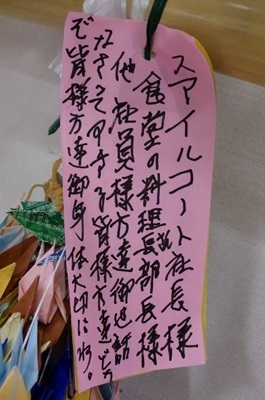 スマイルコート社長様
食堂の料理長部長様
他社員様方達御近訪
なさって下さる皆様方達どう
ぞ皆様方達御身体大切にネ。